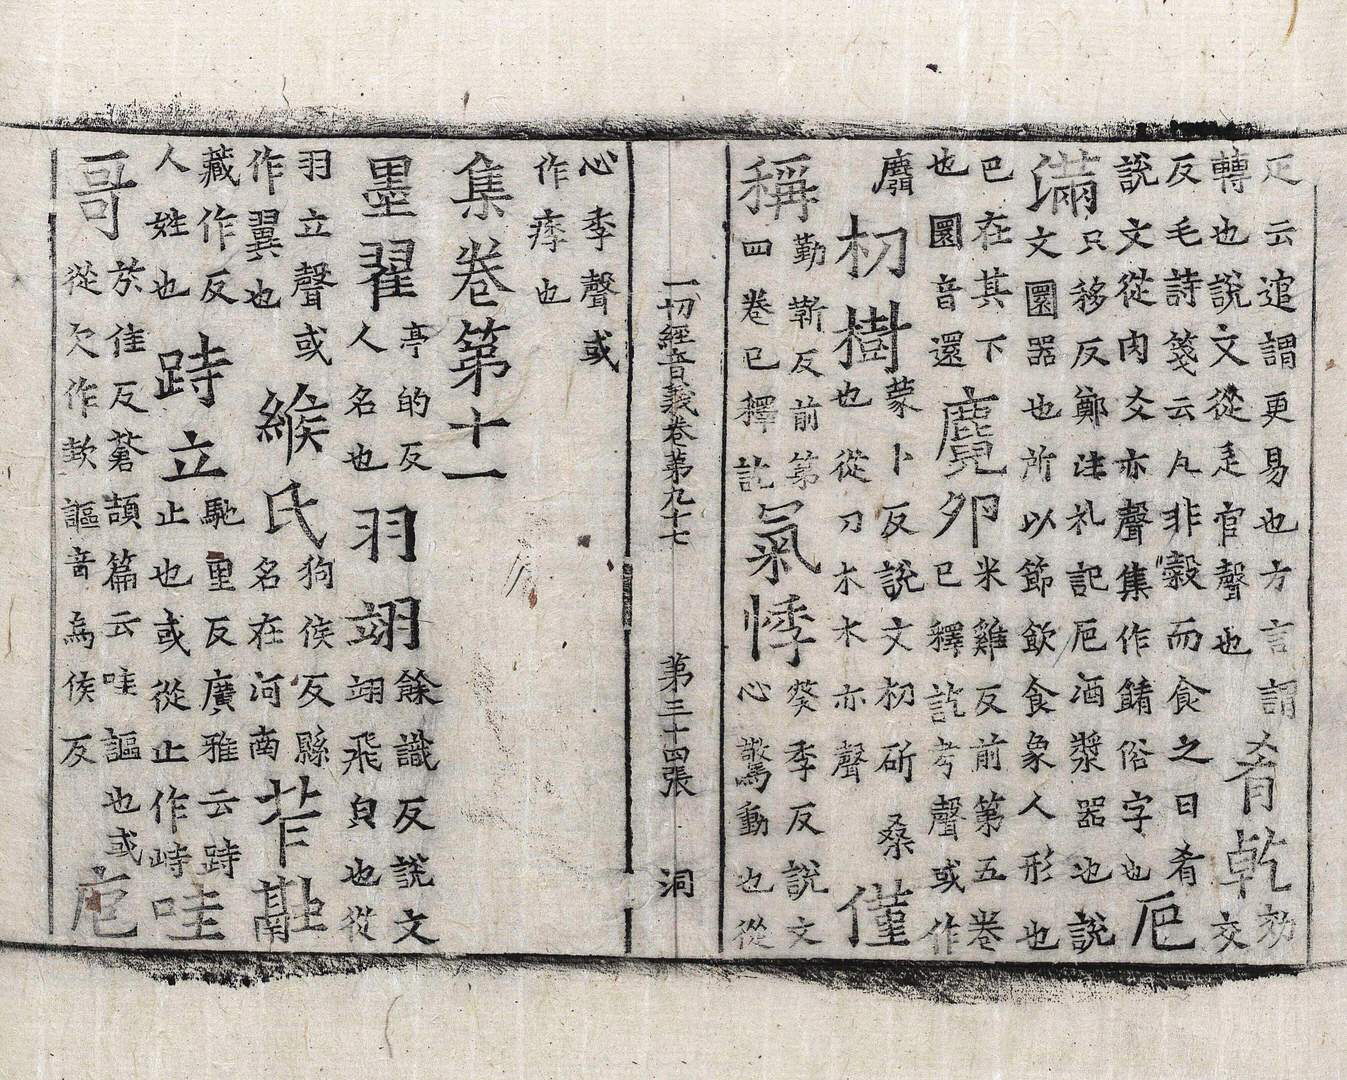 疋云逭謂更易也方言謂
轉也說文從辵官聲也
肴乾
効
交
反毛詩箋云凡非穀而食之曰肴
說文從肉爻亦聲集作餚俗字也
卮
滿
只移反鄭注礼記卮酒漿器也說
文圜器也所以節飲食象人形也
巴在其下
也圜音還
麑卵
米雞反前第五卷
已釋訖考聲或作
麛
朷樹
蒙卜反說文朷斫桒
也從刀木木亦聲
僅
稱
勤靳反前第
四卷已釋訖
氣悸
葵季反說文
心驚動也從
一切經音義卷第九十七 第三十四張 洞
心季聲或
作痵也
集卷第十一
墨翟
亭的反
人名也
羽翊
餘識反說文
翊飛皃也從
羽立聲或
作翼也
緱氏
狗侯反縣
名在河南
苲
藏作反
人姓也
跱立
馳里反廣雅云跱
止也或從止作峙
哇
哥
於佳反蒼頡篇云哇謳也或
從欠作 謳音 侯反
卮